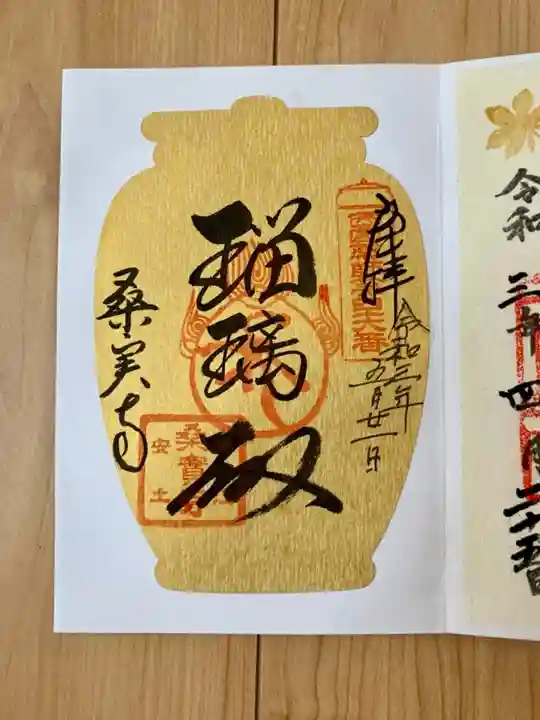 奉拝
令和三年
五月廿一日
瑠璃殿
桑実寺
桑實寺
安土
令和三年四月二十五日